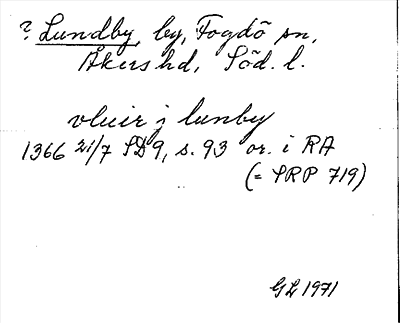 ? Lundby, by, Fogdö sn,
Åkers hd, Söd. l.
vluir j lunby
1366 21/7 SD9, s. 93 or. i RA
(= SRP 719)
GL 1971